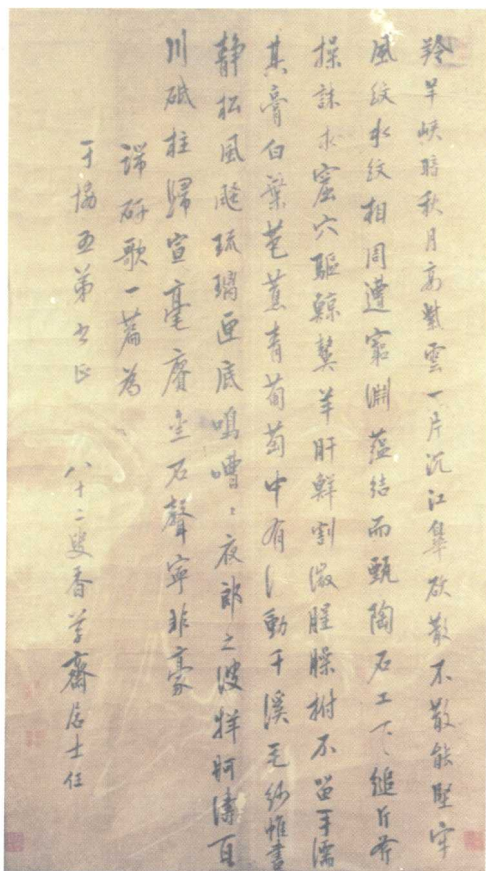 羚羊峽暗秋月高紫雲一片沉江皋欲散不散能堅牢
風紋水紋相周遭窮淵蘊結而甄陶石工下縋斤斧
操誅求窟穴驅鯨鰲羊肝鮮割潑腥臊拊不留手濡
其膏白葉芭蕉青葡萄中有動千溪毛紗帷書
靜松風琉璃匣底鳴嘈〻夜郎之波牂牁濤百
川砥柱歸宣毫賡金石聲寧非豪
端硏歌一篇為
五弟書正
八十二叟香草齋居士任